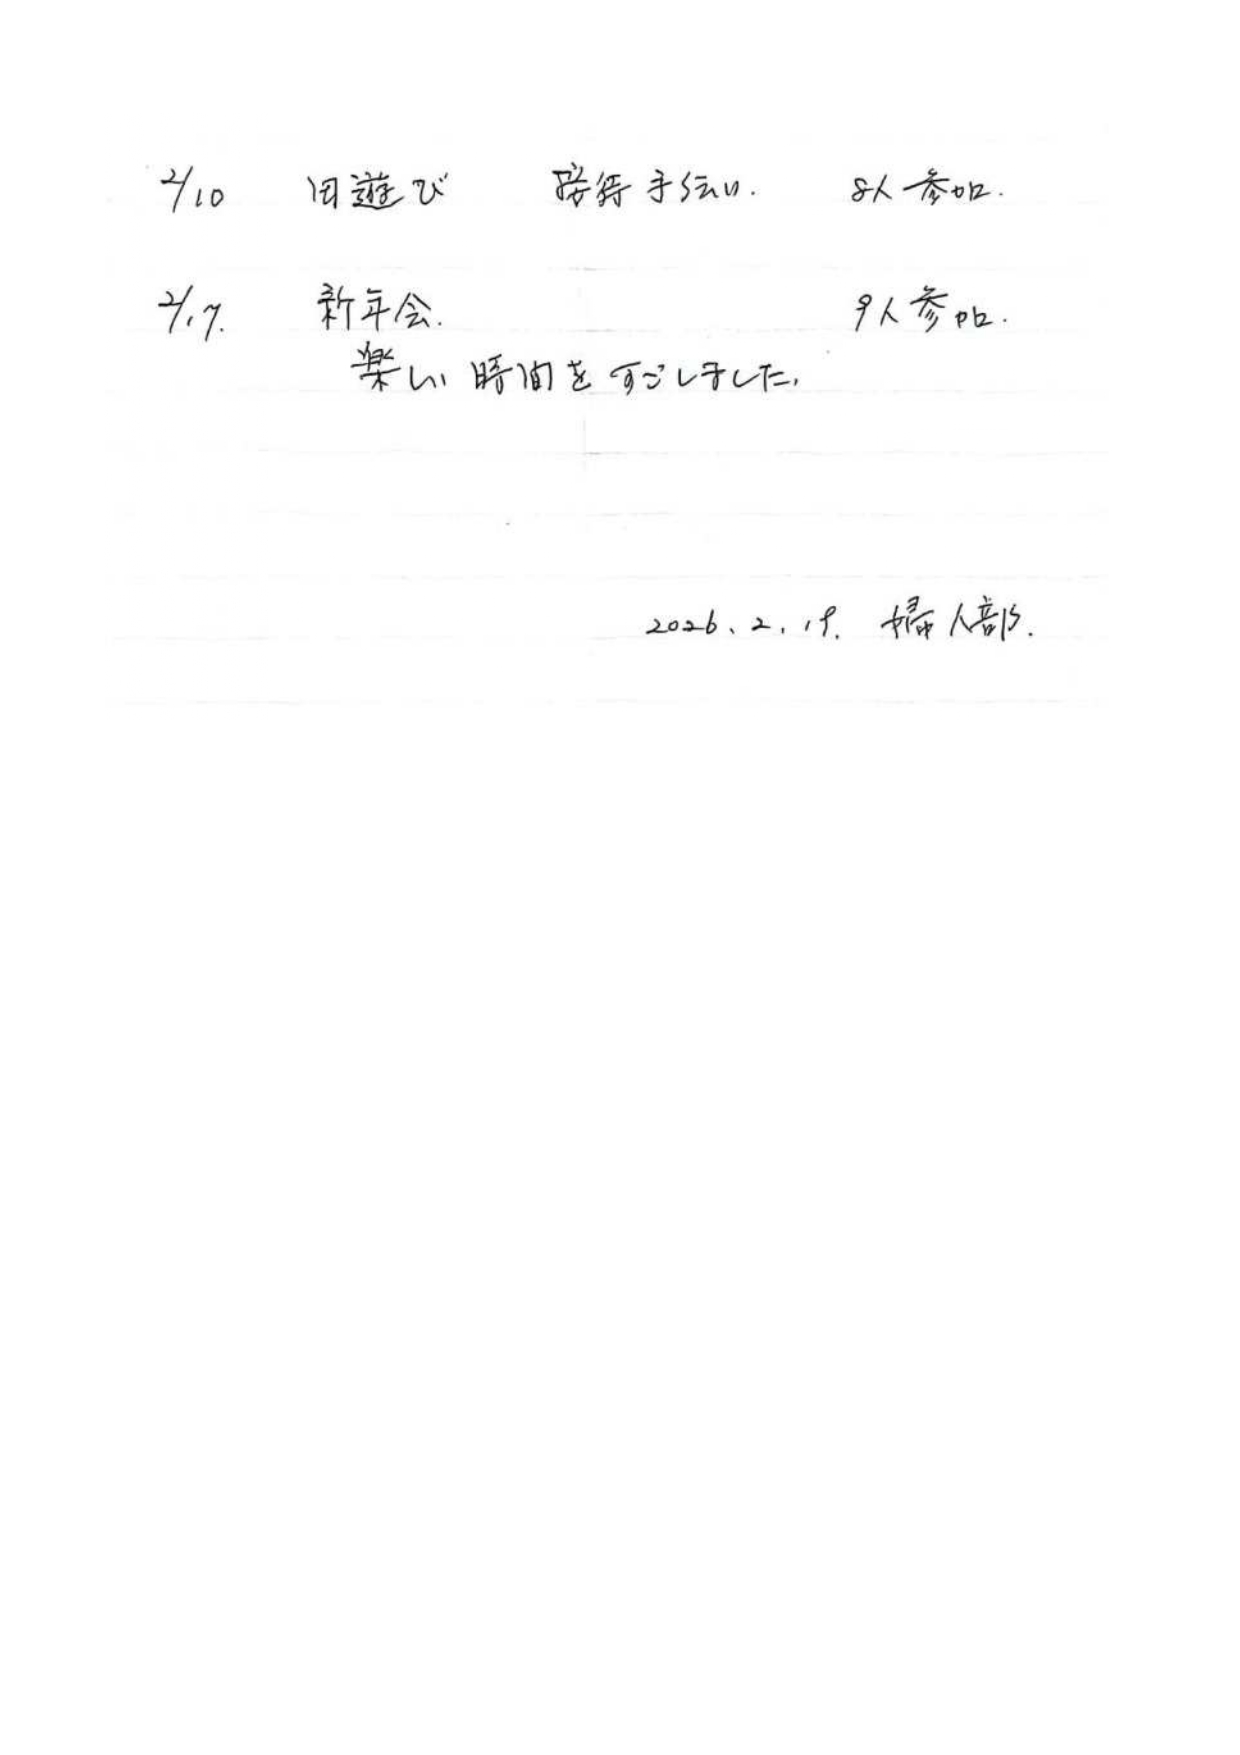 2/10 田遊び 接待手伝い. 8人参加.
2/17. 新年会. 9人参加.
楽しい時間をすごしました.
2026.2.19. 婦人部.